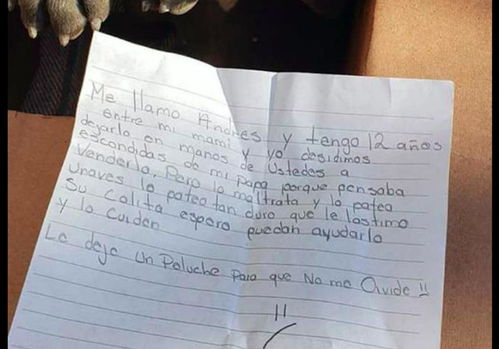 Me llamo Andres y tengo 12 años
entre mi mami y yo desidimos
dejarlo en manos de Ustedes a
escondidas de mi papa porque pensaba
Venderlo, Pero lo maltrata y lo patea
Unaves lo pateo tan duro que le lastimo
Su Colita espero puedan ayudarlo
y lo Cuiden
Le dejo un Peluche Para que No me Olvide !!